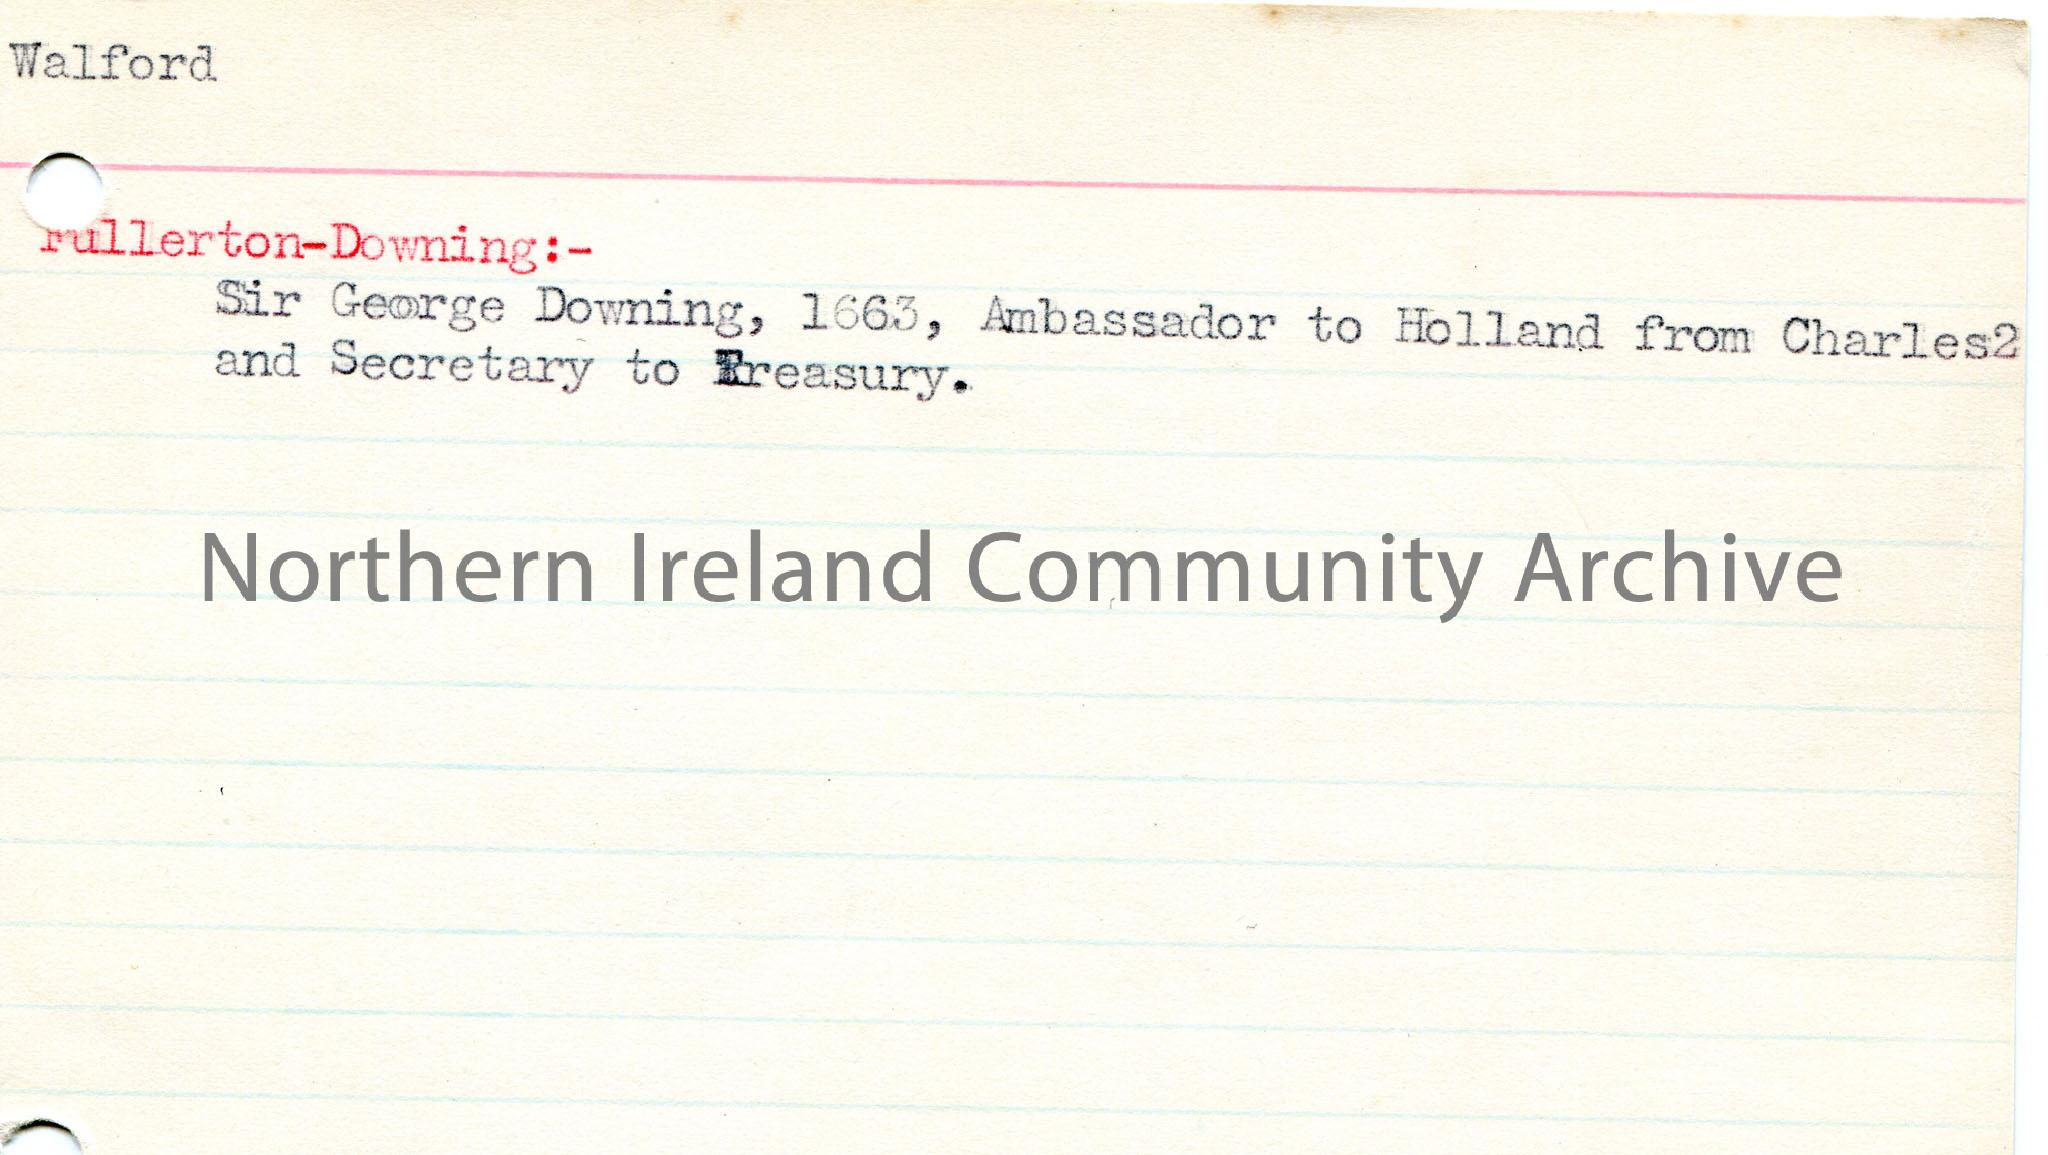 Walford
Fullerton-Downing:-
Sir George Downing, 1663, Ambassador to Holland from Charles2
and Secretary to Treasury.
Northern Ireland Community Archive